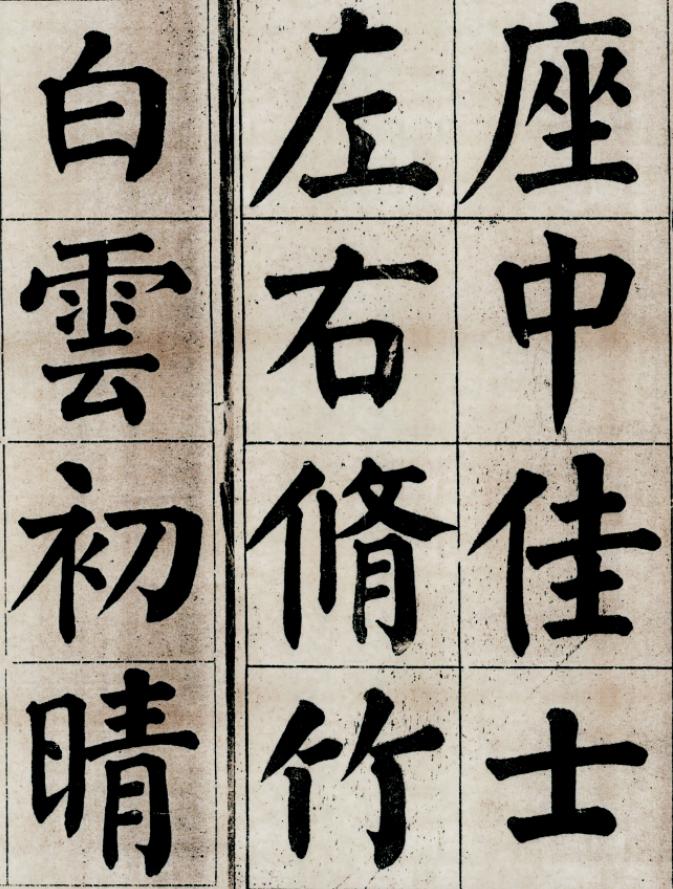 座中佳士
左右脩竹
白雲初晴